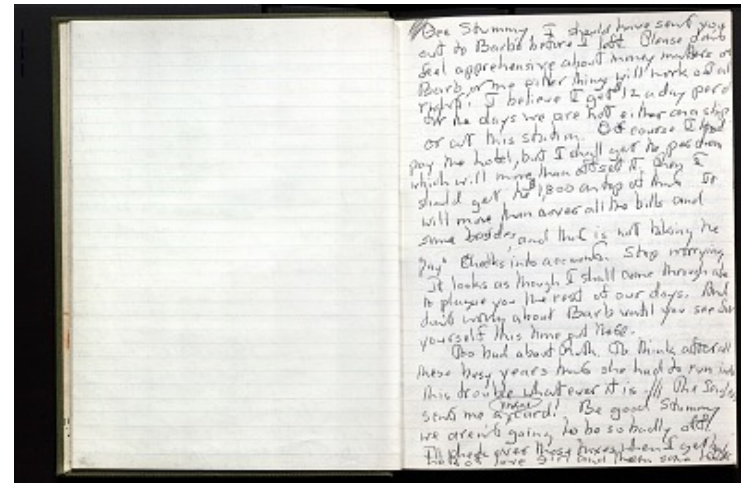 Dee Stummy I should have sent you
out to Barb's before I left. Please don't
feel apprehensive about money matters or
Barb or me either things will work out al
right. I believe I get $12 a day per d
for the days we are not either on a ship
or at this station. Of course I
pay the hotel, but I shall get the per diem
which will more than offset it, then I
should get the $1,800 on top of that. It
will more than cover all the bills and
some besides, and that is not taking the
"pay" checks into account. Stop worrying
It looks as though I shall come through
to plague you the rest of our days. And
don't worry about Barb until you see for
yourself this time out there.
Too bad about Ruth. To think after all
these busy years that she had to run into
this trouble whatever it is. The
sent me a card! Be good Stummy
we aren't going to be so badly off!
I'll check over those taxes when I get
love